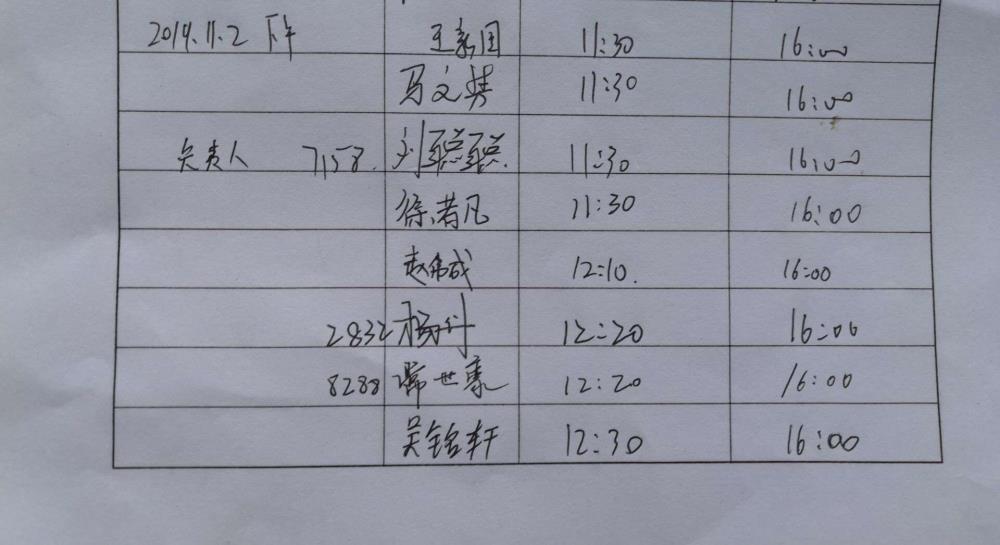 2019.11.2 下午 王新国 11:30 16:00
马文慧 11:30 16:00
负责人 7158. 刘聪聪 11:30 16:00
徐若凡 11:30 16:00
赵伟成 12:10. 16:00
2832 杨 12:20 16:00
8288 常世豪 12:20 16:00
吴铭轩 12:30 16:00